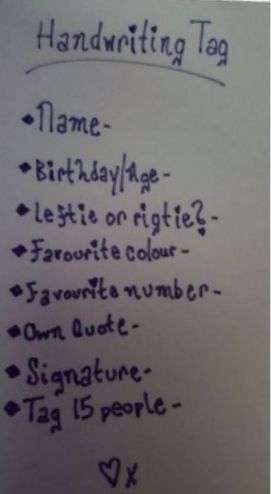 Handwriting Tag
•Name-
•Birthday/Age-
•Leftie or rigtie?-
•Favourite colour-
•Favourite number-
•Own Quote-
•Signature-
•Tag 15 people-
♡x